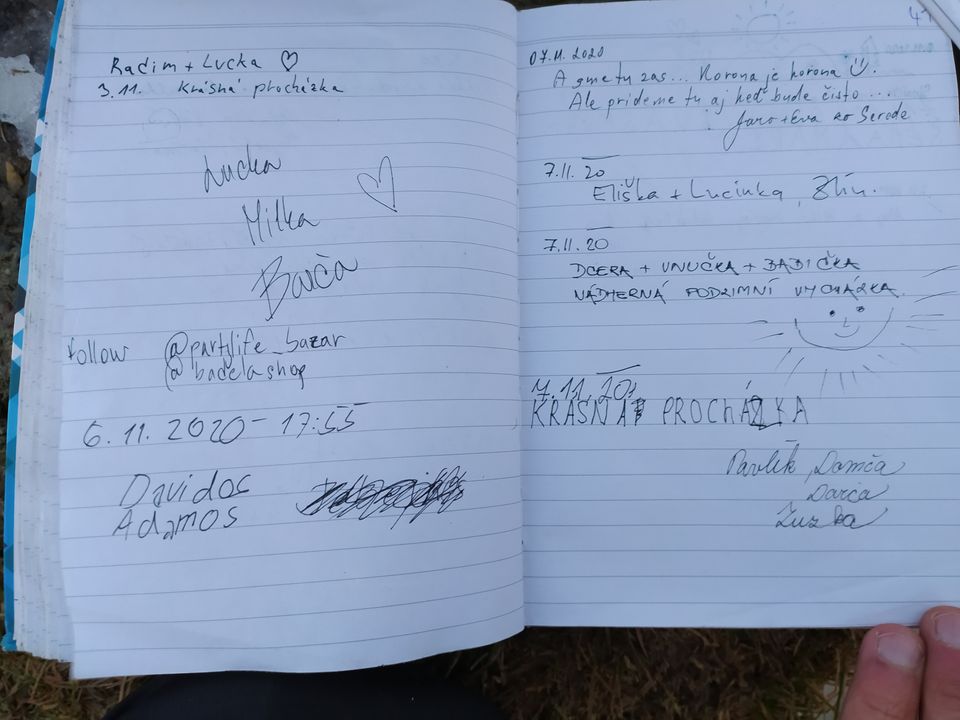 Radim + Lucka ♡
3.11. Krásná procházka
Lucka
Milka ♡
Barča
follow @partylife_bazar
@badelashop
6.11. 2020 - 17:55
Davidos
Adamos
07.11.2020
A sme tu zas... Korona je korona
Ale prídeme tu aj keď bude čisto ...
Jaro + Eva zo Serede
7.11. 20
Eliška + Lucinka, Zlín.
7.11.20
DCERA + VNUČKA + BABIČKA
NÁDHERNÁ PODZIMNÍ VYCHÁZKA
7.11.20
KRÁSNÁ PROCHÁZKA
Pavlík, Domča
Darča
Zuzka